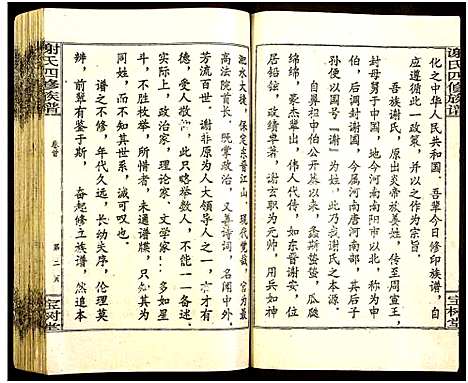 谢氏四修族谱
化之中华人民共和国。吾辈今日修印族谱，自
应遵循此一政策，并以之作为宗旨
吾族谢氏，原出炎帝故姜姓，传至周宣王，
封母舅于申国，地今河南南阳市以北，称为申
伯，后调封谢国，今属河南唐河，其后子
孙便以国号“谢”为姓，此乃我谢氏之本源。
自鼻祖申伯公开基以来，螽斯蛰蛰，瓜瓞
绵绵，豪杰辈出，伟人代传，如东晋谢安，位
居铅铉，政绩卓著，谢玄职为元帅，用兵如神
宝树堂
谢氏四修族谱
卷首
第二页
宝树堂
淝水大战，保定东晋江山，现代党哉，官为最
高法院首长，既掌政治，又善诗词，名闻中外，
芳流百世，谢非原为人大副委员长之一，才有
德，受人敬仰，此只略举数人，不能一一备述。
实际上，政治家，理论家，文学家……多如星
斗，不胜枚举，所惜者，未通谱牒，只只知
同姓，而不知其世系，诚可叹也。
谱之不修，年代久远，长幼失序，伦理莫
辨，前辈有鉴于斯，奋起修立族谱，然追本